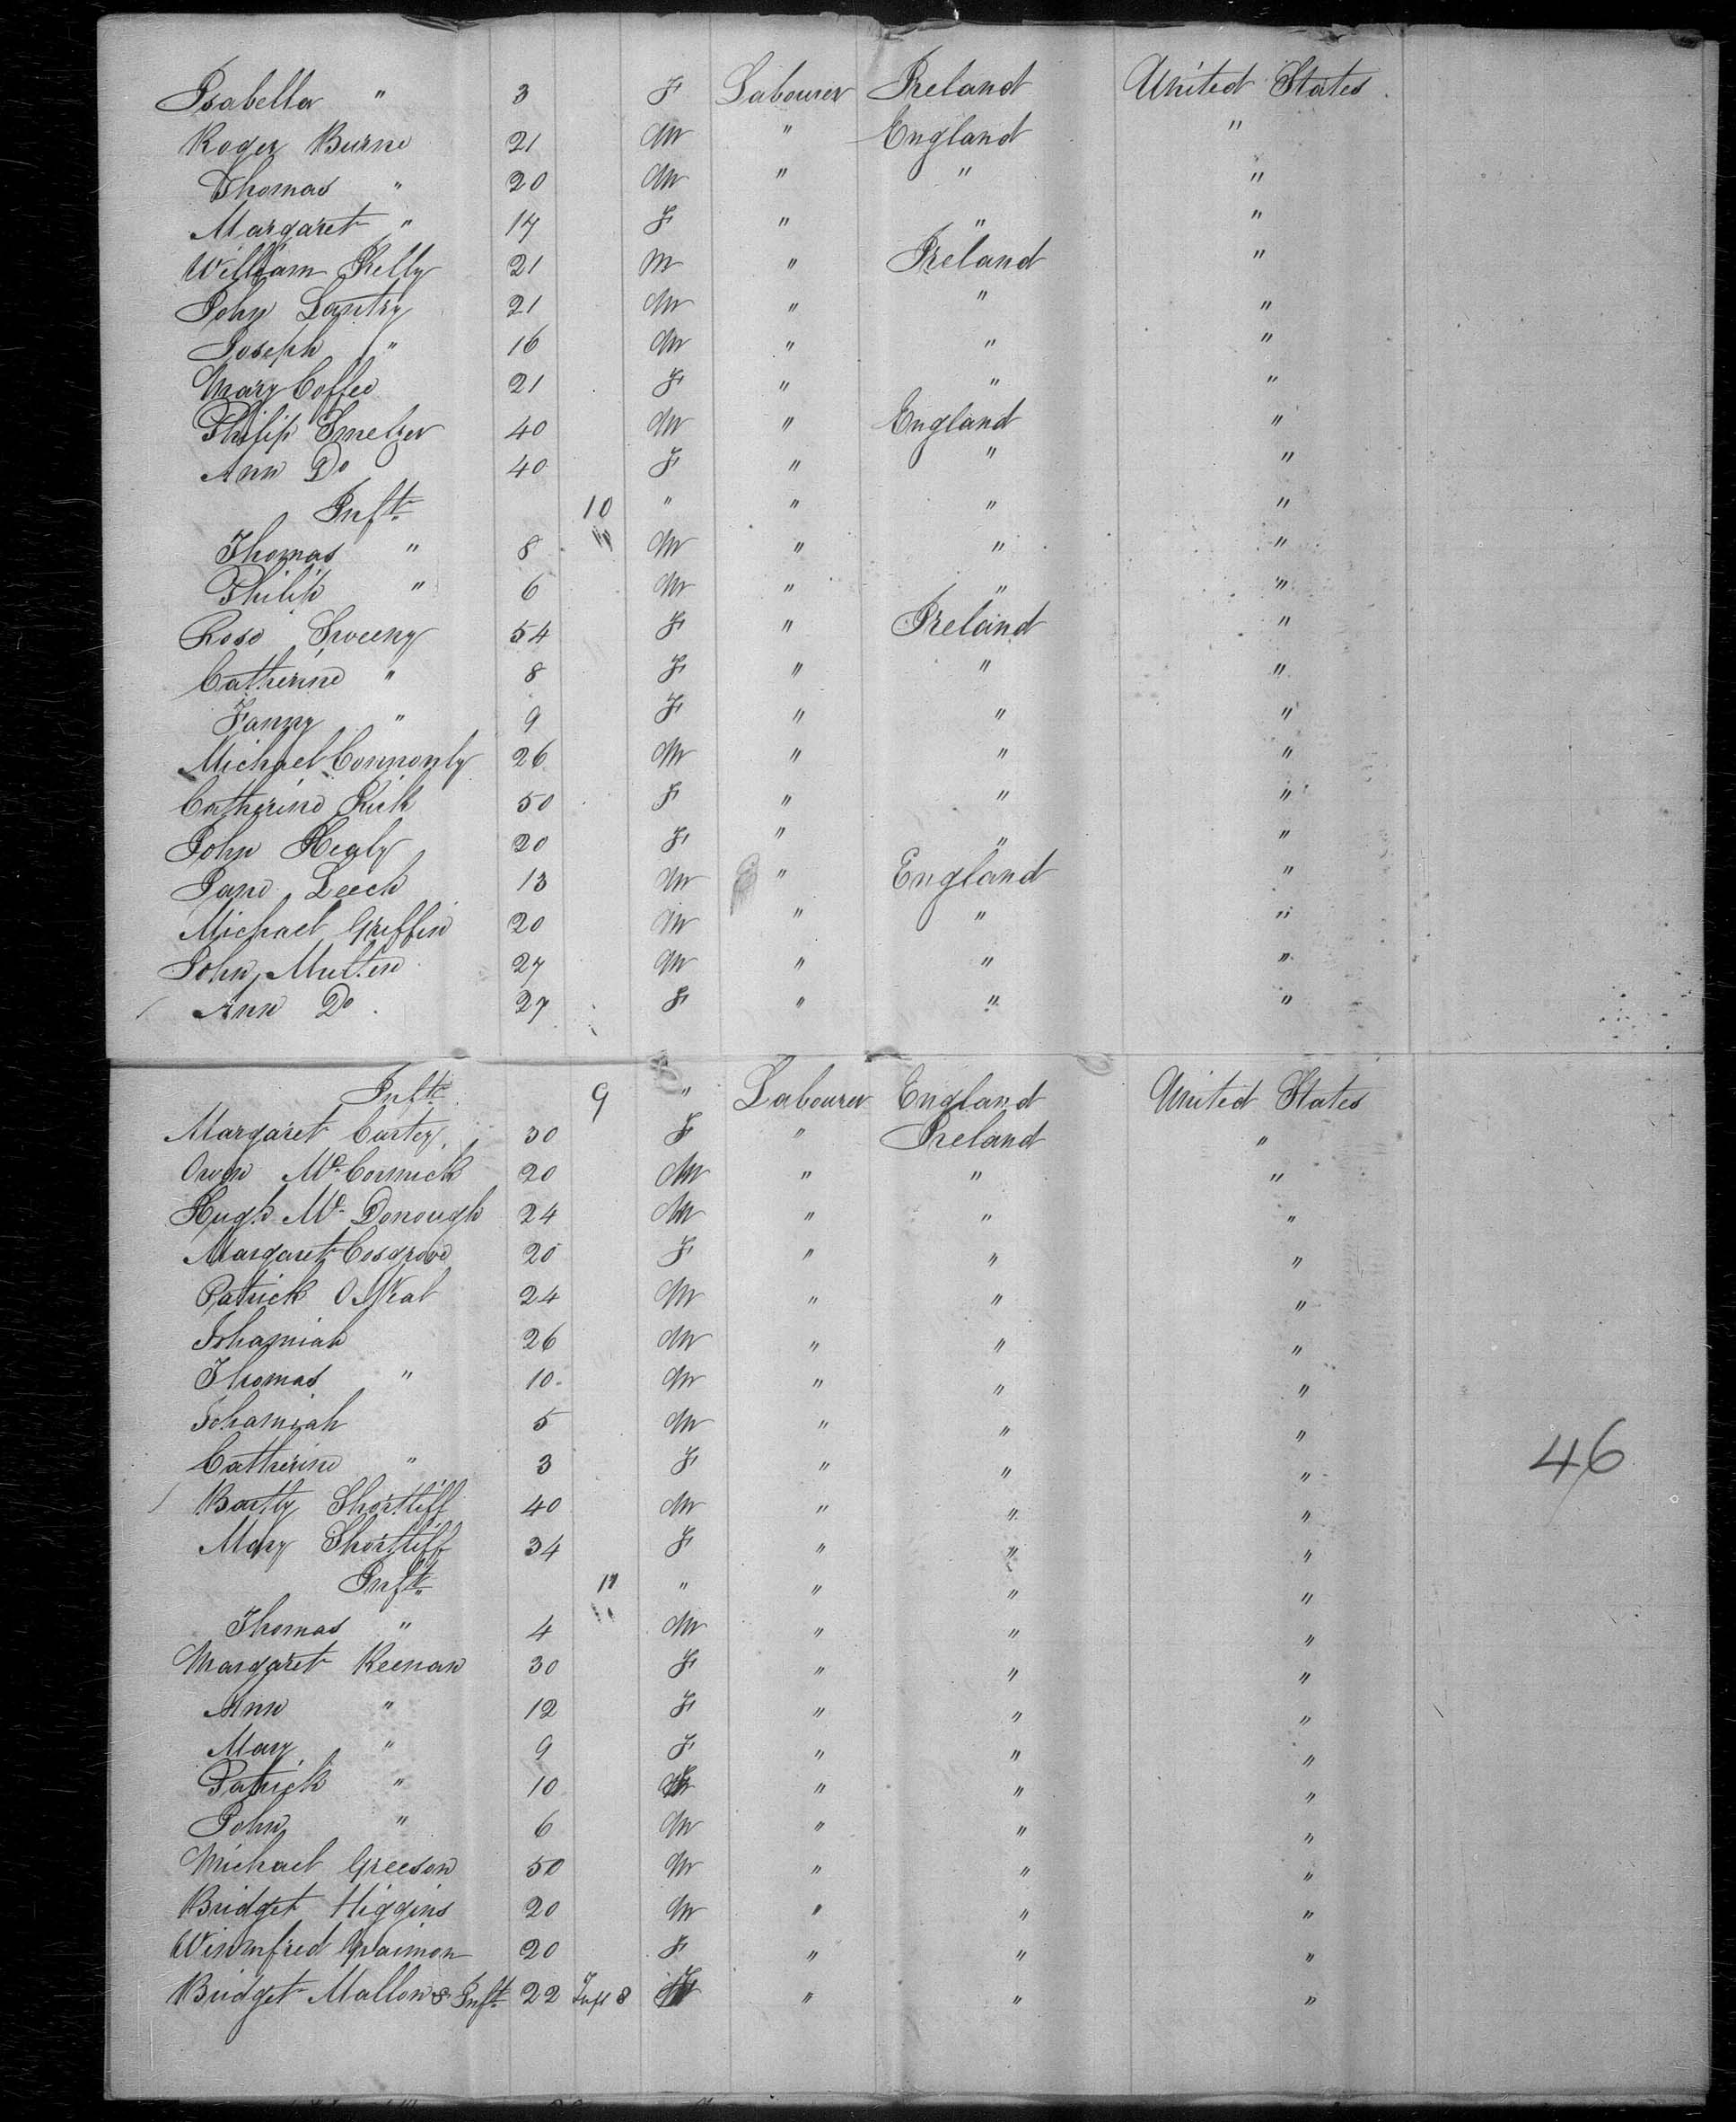 Isabella " 3 F Labourer Ireland United States
Roger Burne 21 M " England "
Thomas " 20 M " " "
Margaret " 17 F " " "
William Kelly 21 M " Ireland "
John Lantry 21 M " " "
Joseph " 16 M " " "
Mary Coffee 21 F " " "
Philip Smelzer 40 M " England "
Ann Do 40 F " " "
Inft. 10 " " " "
Thomas " 8 M " " "
Philip " 6 M " " "
Rose Sweeny 54 F " Ireland "
Catherine " 8 F " " "
Fanny " 9 F " " "
Michael Connonly 26 M " " "
Catherine Kirk 50 F " " "
John Healy 20 F " " "
Jane Leech 13 M " England "
Michael Griffin 20 M " " "
John Mullen 27 M " " "
Ann Do 27 F " " "
Inft. 9 " Labourer England United States
Margaret Carter 30 F " Ireland "
Owen McCormick 20 M " " "
Hugh McDonough 24 M " " "
Margaret Cosgrove 20 F " " "
Patrick O Neal 24 M " " "
Johamiah 26 M " " "
Thomas " 10 M " " "
Johamiah 5 M " " "
Catherine " 3 F " " "
46
Bartly Shortliff 40 M " " "
Mary Shortliff 34 F " " "
Inft. 11 " " " "
Thomas " 4 M " " "
Margaret Keenan 30 F " " "
Ann " 12 F " " "
Mary " 9 F " " "
Patrick " 10 M " " "
John " 6 M " " "
Michael Greeson 50 M " " "
Bridget Higgins 20 M " " "
Winmfred 20 F " " "
Bridget Mallon & Inft. 22 Inft 8 F " " "